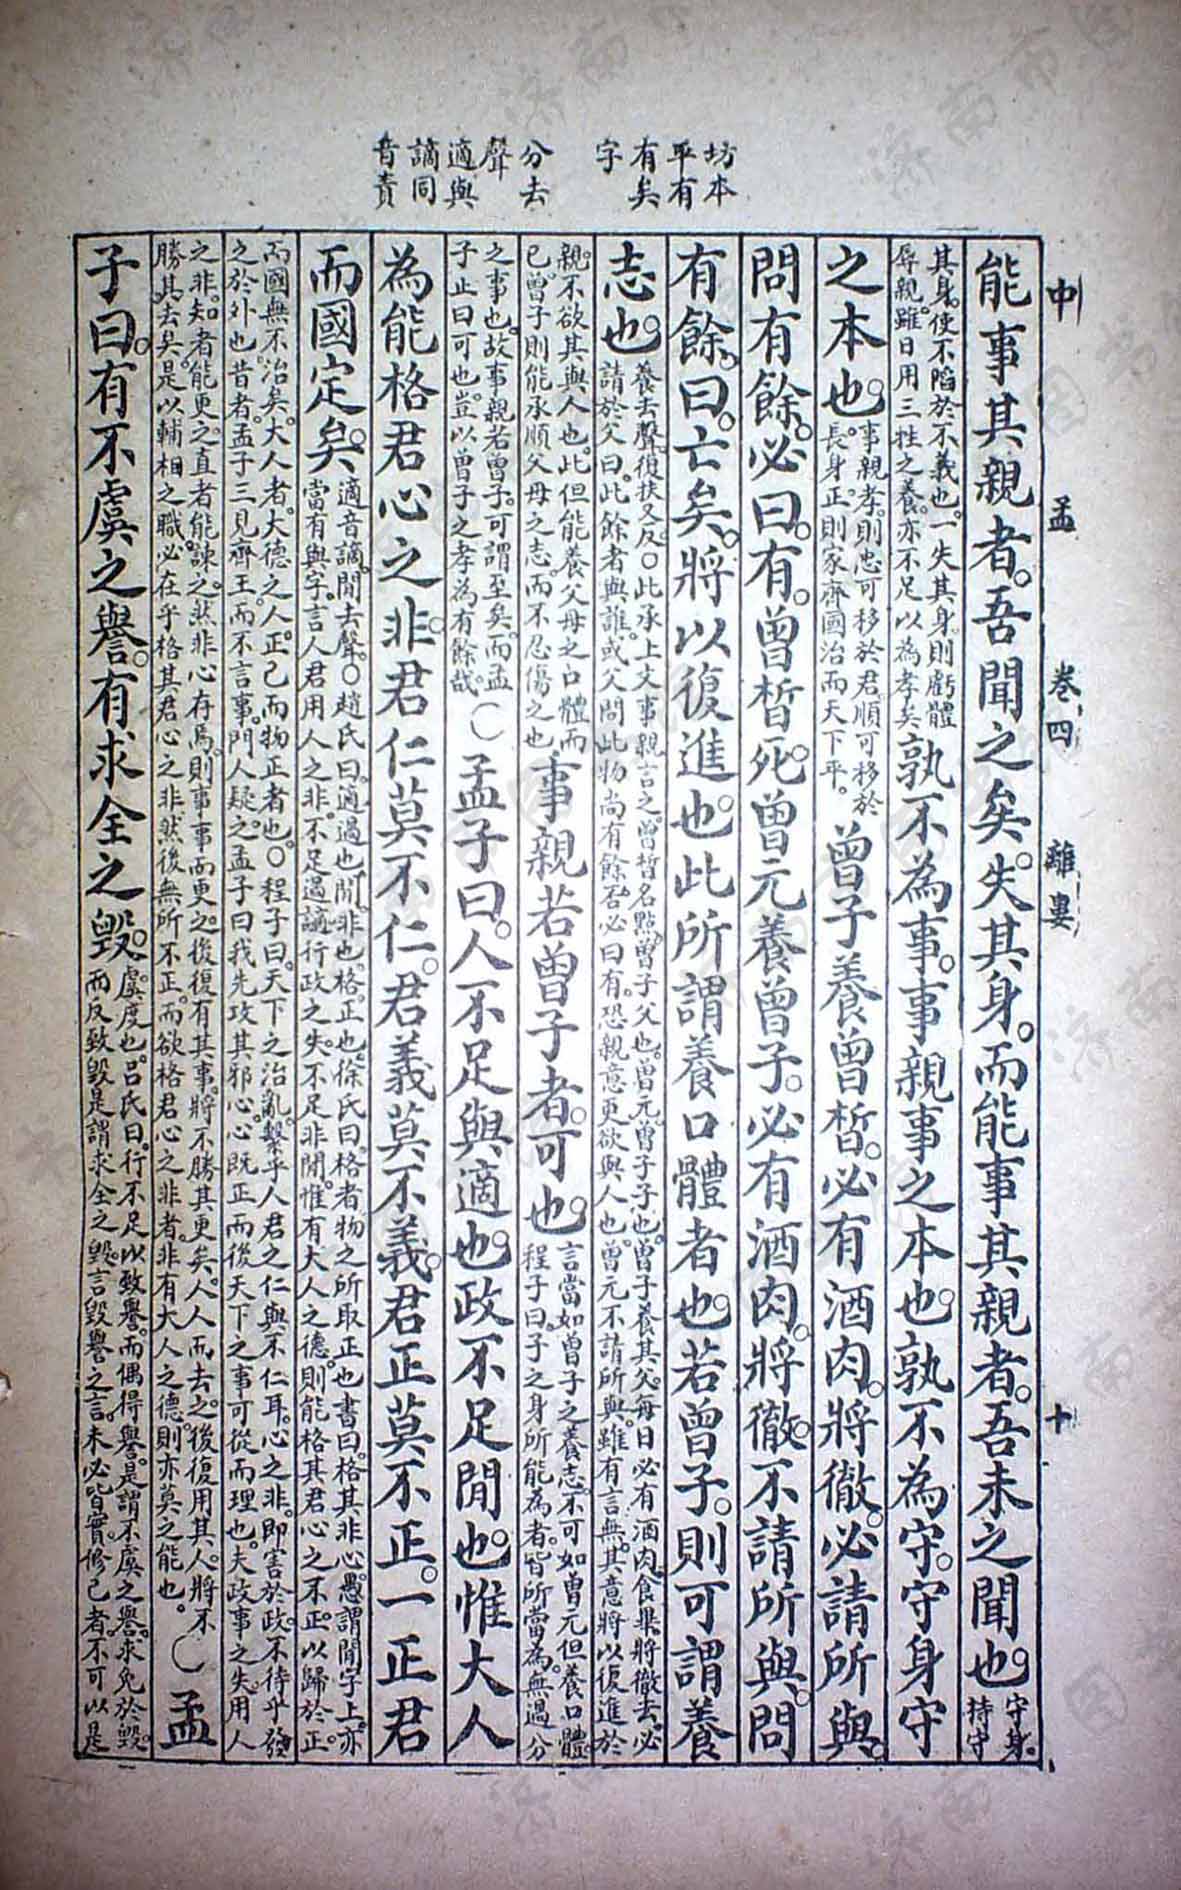 坊本
平有
有矣
字
分去
聲
適與
謫同
音責
中孟 卷四 離婁 十
能事其親者。吾聞之矣。失其身。而能事其親者。吾未之聞也。守身。持守
其身。使不陷於不義也。一失其身。則虧體辱親。雖日用三牲之養。亦不足以為孝矣孰不為事。事親事之本也。孰不為守。守身守
之本也。事親孝。則忠可移於君。順可移於長。身正。則家齊國治而天下平。曾子養曾皙。必有酒肉。將徹。必請所與。
問有餘。必曰。有。曾皙死。曾元養曾子。必有酒肉。將徹。不請所與。問
有餘。曰。亡矣。將以復進也。此所謂養口體者也。若曾子。則可謂養
志也。養去聲。復扶又反。○此承上文事親言之。曾皙名點。曾子父也。曾元。曾子子也。曾子養其父。每日必有酒肉。食畢將徹去。必請於父曰。此餘者與誰。或父問此物尚有餘否。必曰有。恐親意更欲與人也。曾元不請所與。雖有言無。其意將以復進於
親。不欲其與人也。此但能養父母之口體而已。曾子則能承順父母之志。而不忍傷之也事親若曾子者。可也。言當如曾子之養志。不可如曾元但養口體。程子曰。子之身所能為者。皆所當為。無過分
之事也。故事親若曾子。可謂至矣。而孟子止曰可也。豈以曾子之孝為有餘哉。○孟子曰。人不足與適也。政不足閒也。惟大人
為能格君心之非。君仁莫不仁。君義莫不義。君正莫不正。一正君
而國定矣。適音謫。閒去聲。○趙氏曰。適過也。閒。非也。格。正也。徐氏曰。格者物之所取正也。書曰。格其非心。愚謂閒字上。亦當有與字。言人君用人之非。不足過謫。行政之失。不足非閒。惟有大人之德。則能格其君心之不正。以歸於正。
而國無不治矣。大人者。大德之人。正己而物正者也。○程子曰。天下之治亂。繫乎人君之仁與不仁耳。心之非。即害於政。不待乎發之於外也。昔者。孟子三見齊王。而不言事。門人疑之。孟子曰我先攻其邪心。心既正而後天下之事可從而理也。夫政事之失。用人
之非。知者能更之。直者能諫之。然非心存焉。則事事而更之。後復有其事。將不勝其更矣。人人而去之。後復用其人。將不勝其去矣。是以輔相之職。必在乎格其君心之非。然後無所不正。而欲格君心之非者。非有大人之德。則亦莫之能也。○孟
子曰。有不虞之譽。有求全之毀。虞。度也。呂氏曰。行不足以致譽。而偶得譽。是謂不虞之譽。求免於毀。而反致毀。是謂求全之毀。言毀譽之言。未必皆實。修己者。不可以是